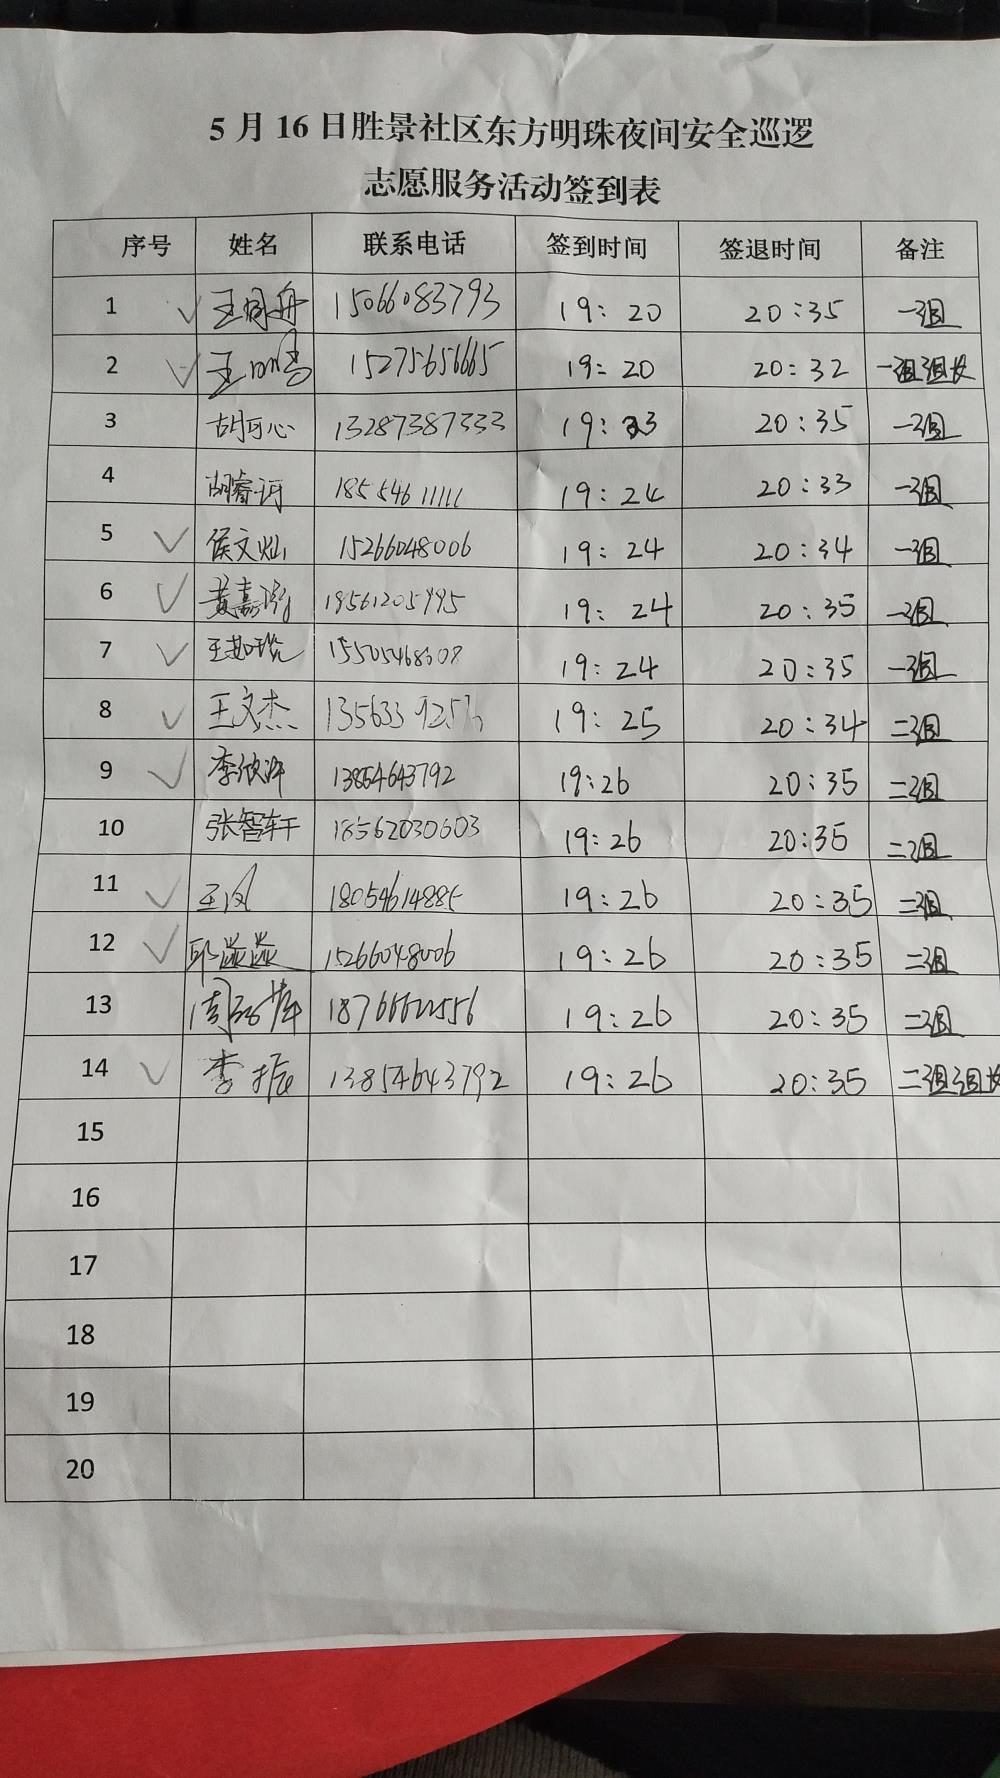 5月16日胜景社区东方明珠夜间安全巡逻
志愿服务活动签到表
序号 姓名 联系电话 签到时间 签退时间 备注
1 15066083793 19:20 20:35 一组
2 15275656665 19:20 20:32 一组组长
3 胡可心 13287387333 19:23 20:35 一组
4 胡睿诃 18554611111 19:24 20:33 一组
5 侯文灿 15266048006 19:24 20:34 一组
6 黄嘉 18561205995 19:24 20:35 一组
7 19:24 20:35 一组
8 王文杰 19:25 20:34 二组
9 李欣 13854643792 19:26 20:35 二组
10 张智轩 18562030603 19:26 20:35 二组
11 王 18054614885 19:26 20:35 二组
12 邱溢溢 15266048006 19:26 20:35 二组
13 周 19:26 20:35 二组
14 李振 13854643792 19:26 20:35 二组组长
15
16
17
18
19
20